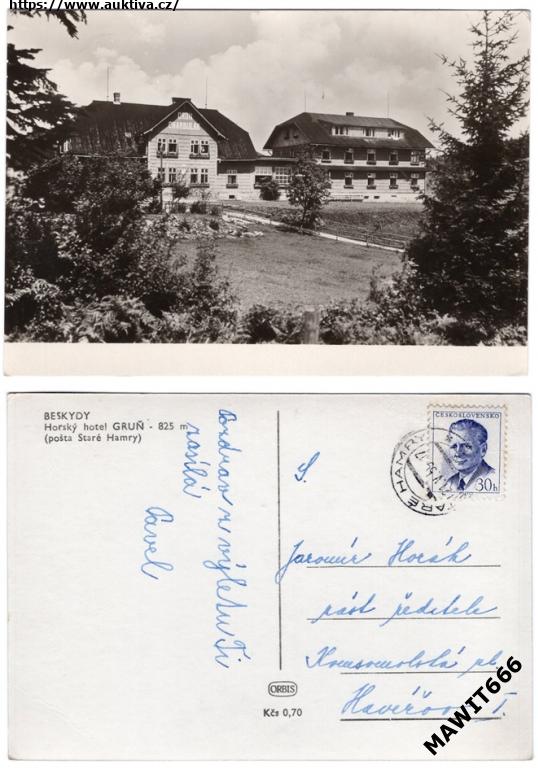 https://www.auktiva.cz/
BESKYDY
Horský hotel GRUŇ - 825 m
(pošta Staré Hamry)
Pozdrav z výletu Ti
zasílá
Pavel
ČESKOSLOVENSKO
30h
STARÉ HAMRY
S.
Jaromír Horák
zást ředitele
Komsomolská
Havířov I
ORBIS
Kčs 0,70
MAWIT666